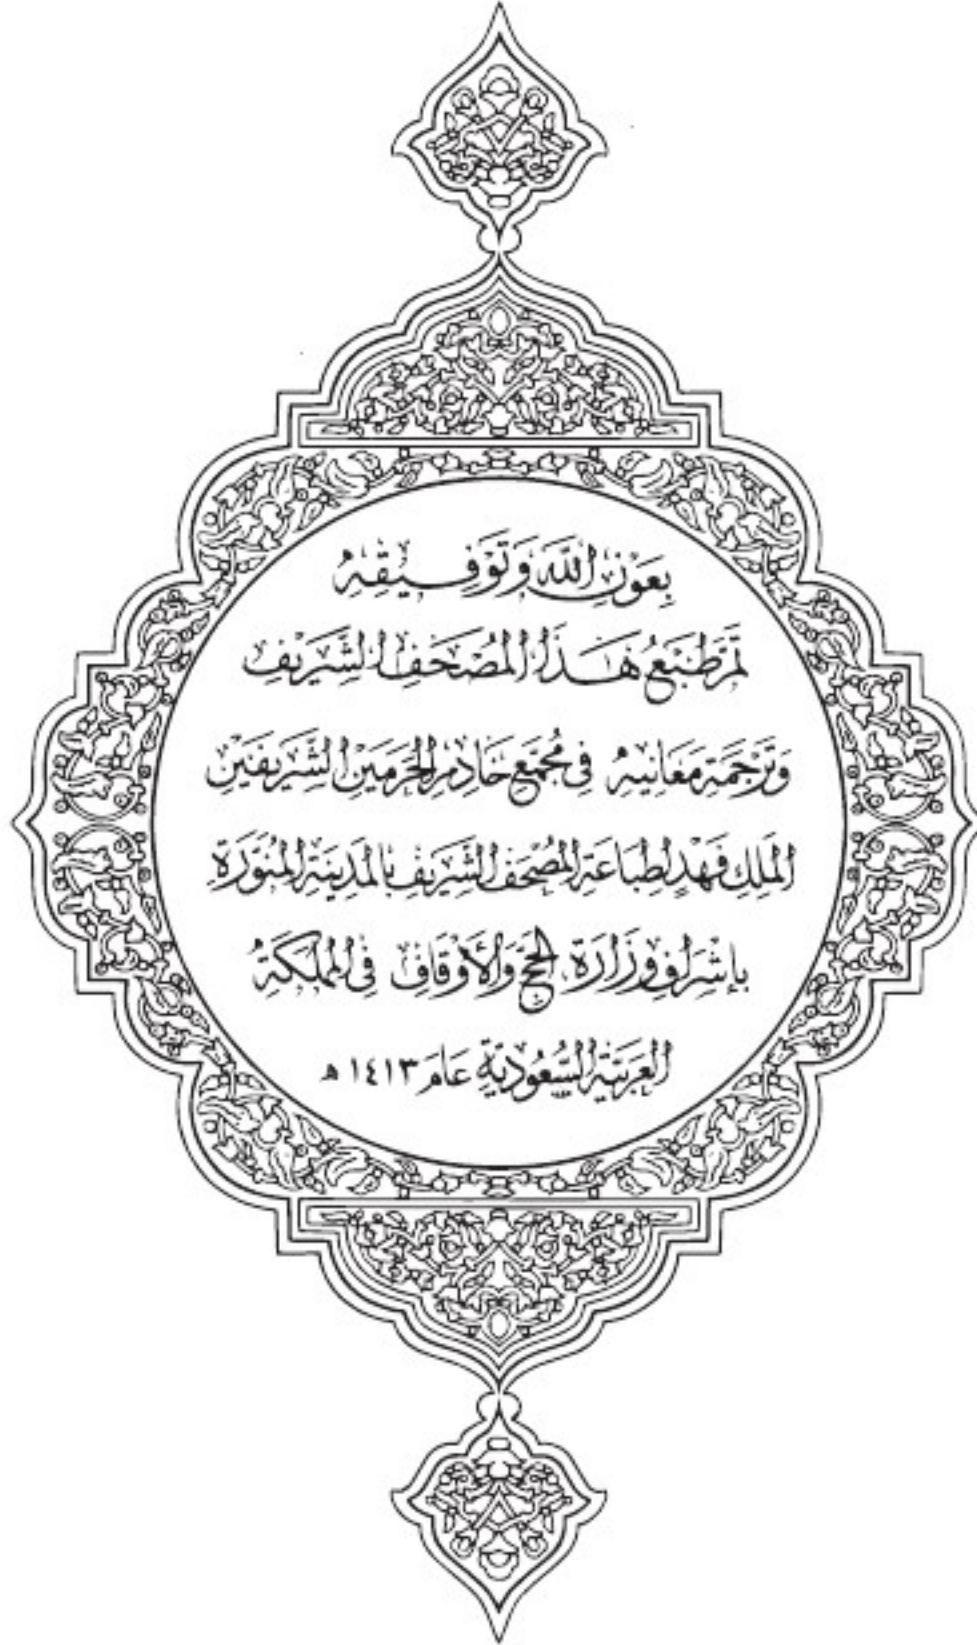 بِعَوْنِ اللَّهِ وَتَوْفِيقِهِ
تَمَّ طَبْعُ هَذَا الْمُصْحَفِ الشَّرِيفِ
وَتَرْجَمَةِ مَعَانِيهِ فِي مُجَمَّعِ خَادِمِ الْحَرَمَيْنِ الشَّرِيفَيْنِ
الْمَلِكِ فَهْدٍ لِطِبَاعَةِ الْمُصْحَفِ الشَّرِيفِ بِالْمَدِينَةِ الْمُنَوَّرَةِ
بِإِشْرَافِ وَزَارَةِ الْحَجِّ وَالْأَوْقَافِ فِي الْمَمْلَكَةِ
الْعَرَبِيَّةِ السُّعُودِيَّةِ عَامَ ١٤١٣ هـ